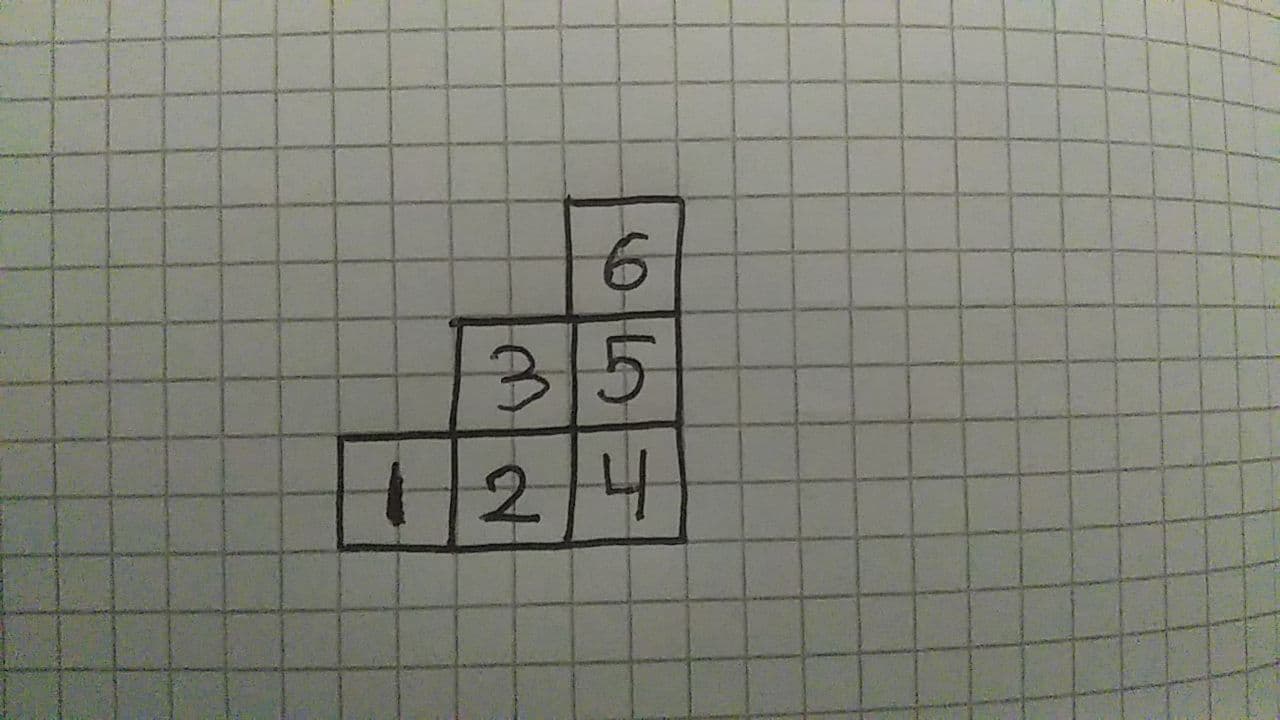 6
3 5
1 2 4